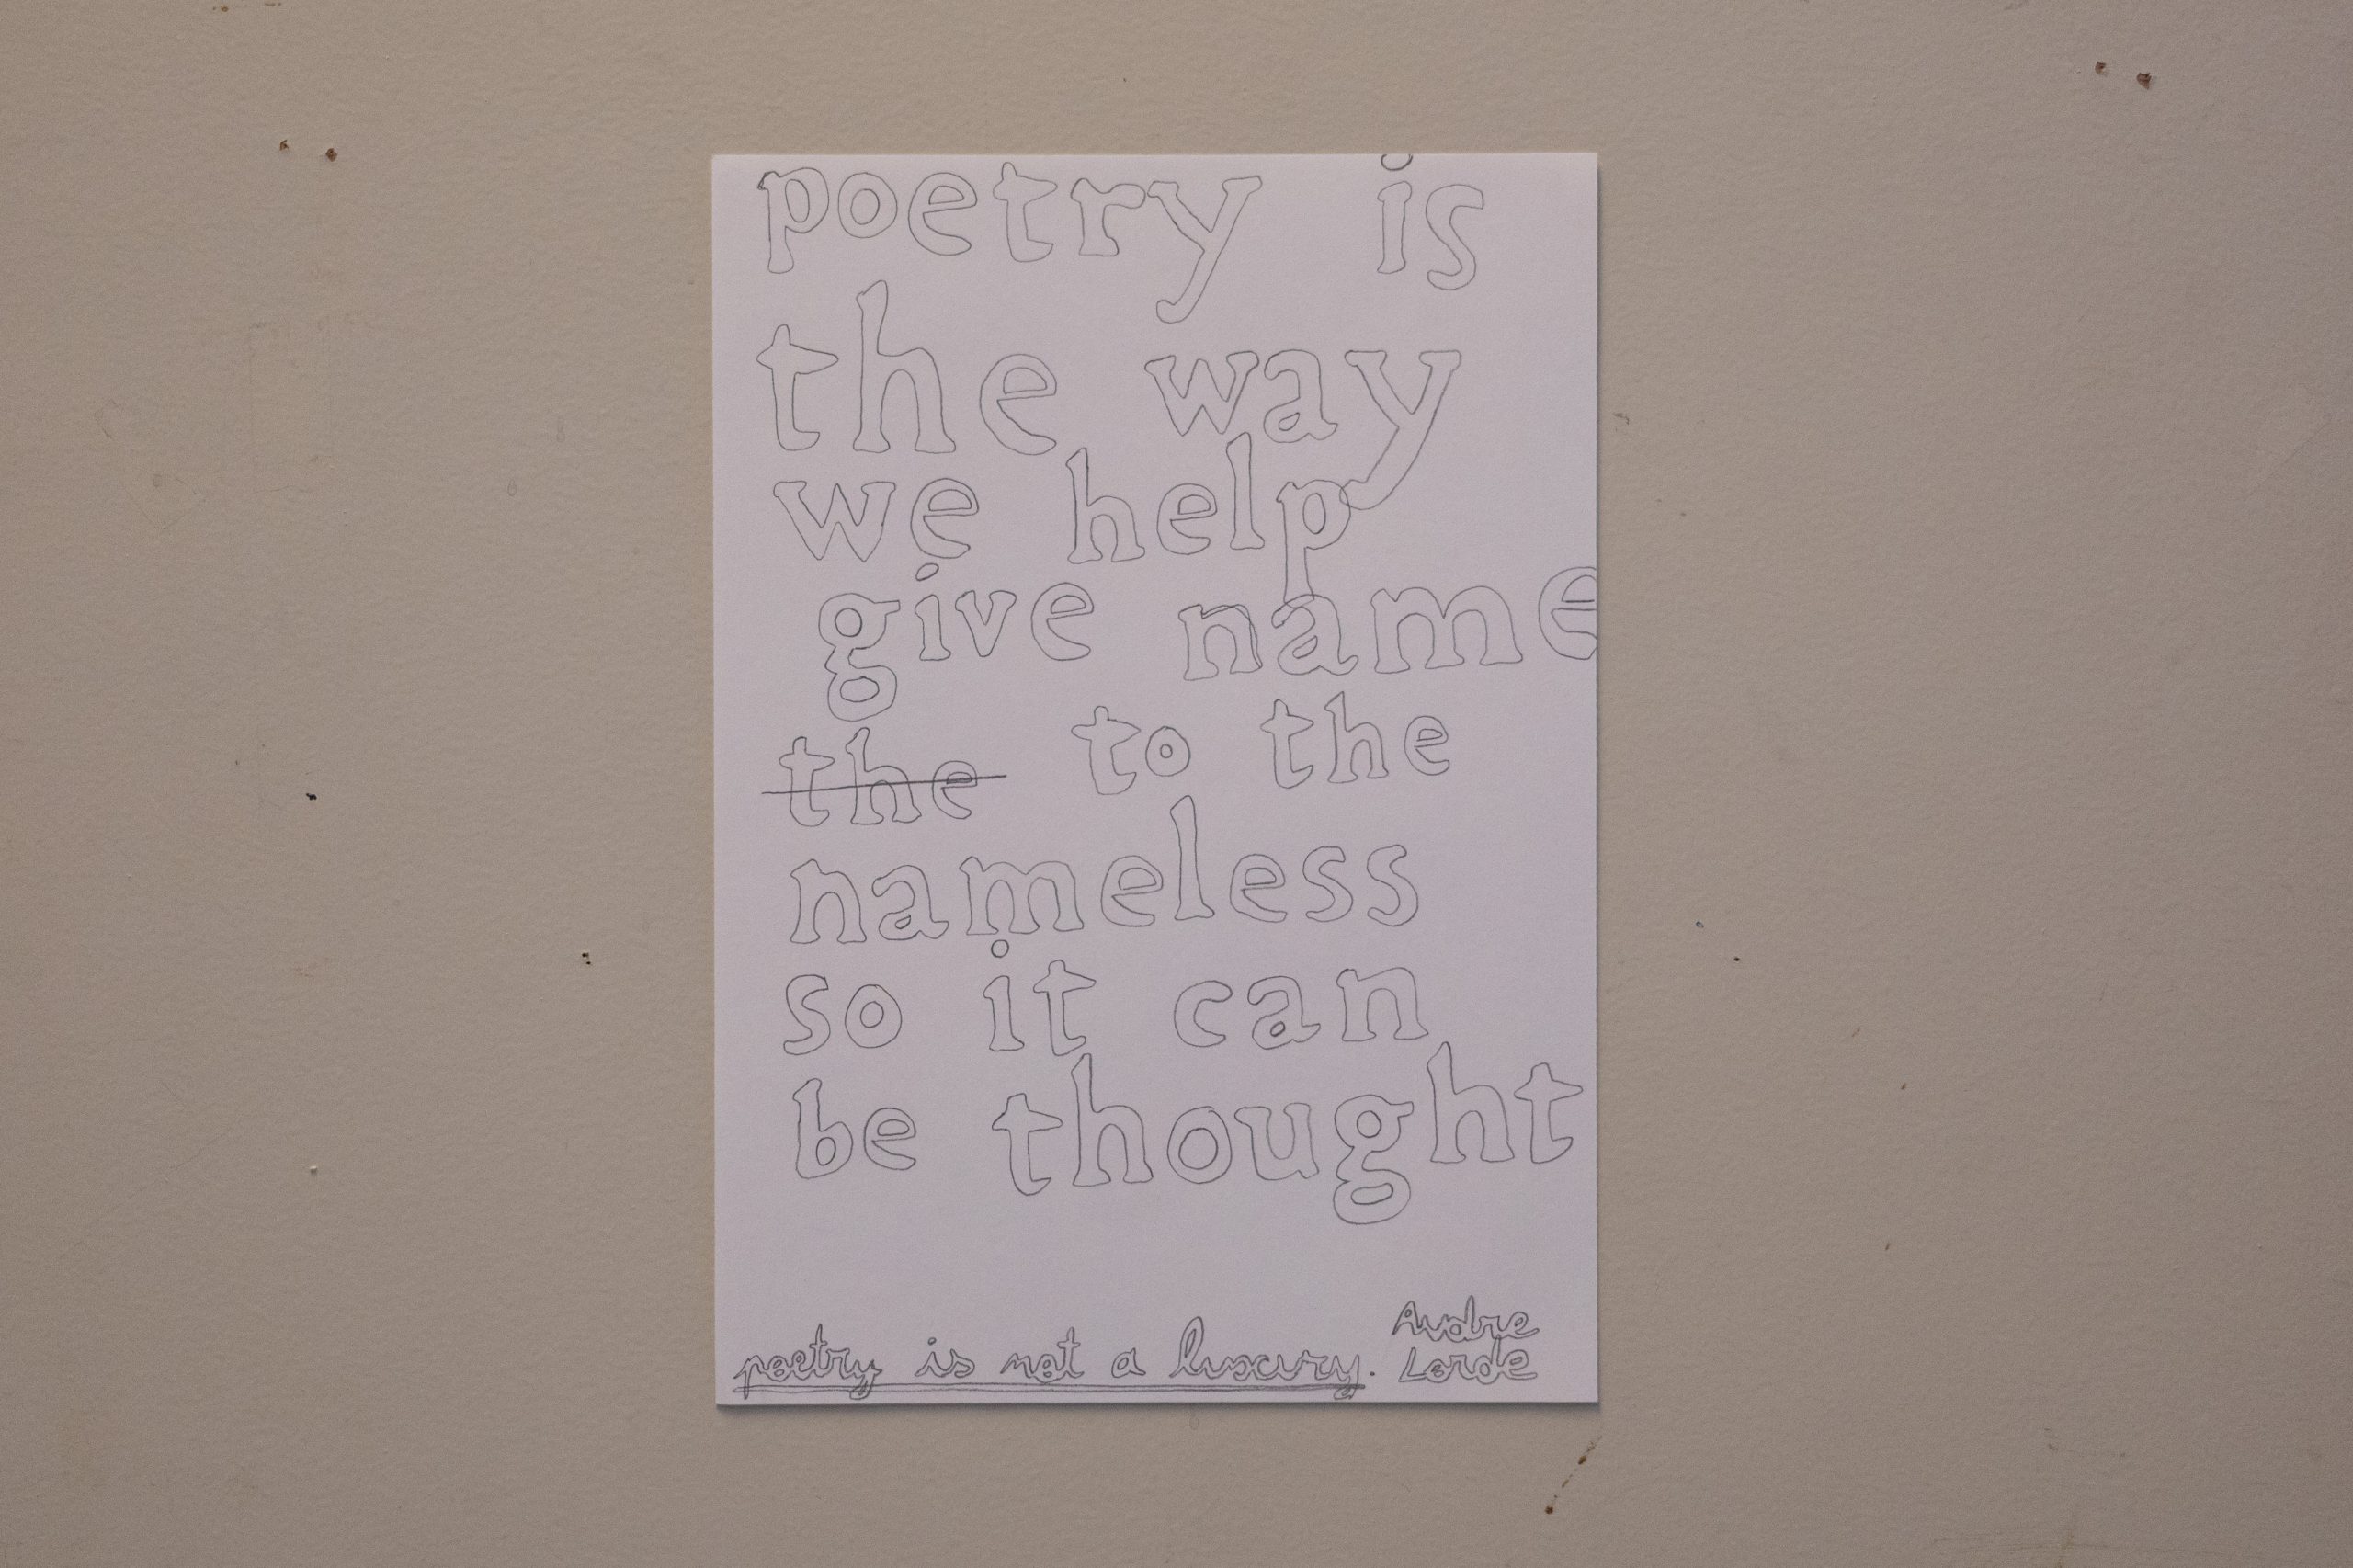 poetry is
the way
we help
give name
the to the
nameless
so it can
be thought
poetry is not a luxury. Audre
Lorde